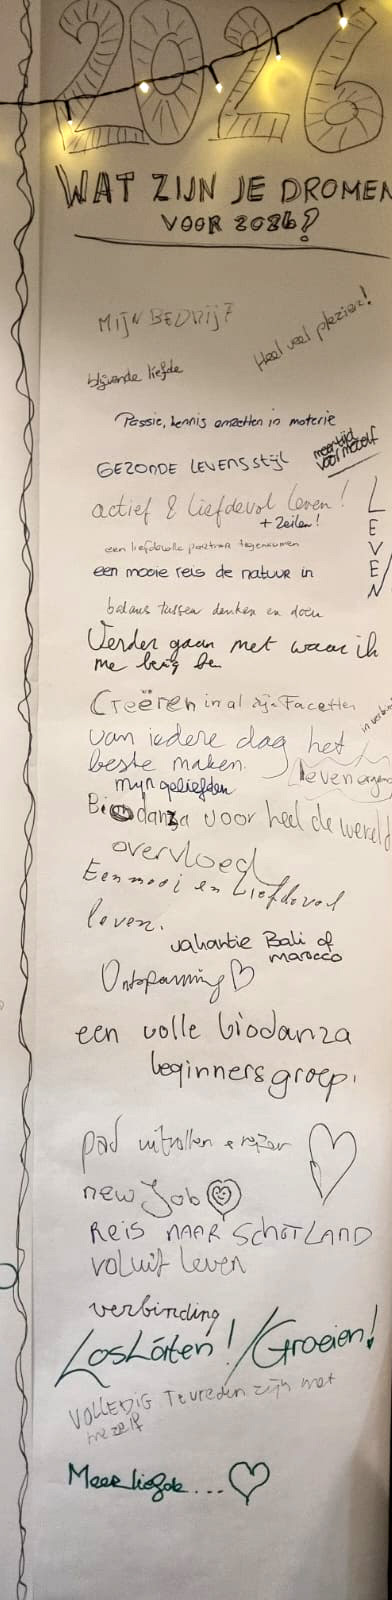 2026
WAT ZIJN JE DROMEN
VOOR 2026?
MIJN BEDRIJF
Heel veel plezier!
blijvende liefde
Passie, kennis omzetten in materie
meer tijd
voor mezelf
GEZONDE LEVENSSTIJL
actief & liefdevol leven!
+ zeilen!
LEVEN
een liefdevolle partner tegenkomen
een mooie reis de natuur in
balans tussen denken en doen
Verder gaan met waar ik
me bezig ben
Creëren in al zijn Facetten
van iedere dag het
beste maken.
leven
mijn geliefden
Biodanza voor heel de wereld
overvloed
Een mooi en Liefdevol
leven.
vakantie Bali of
marocco
Ontspanning ♡
een volle biodanza
beginners groep.
pad uitrollen
new Job
REIS NAAR SCHOTLAND
voluit leven
verbinding
Loslaten! / Groeien!
VOLLEDIG Tevreden zijn met
mezelf
Meer liefde... ♡